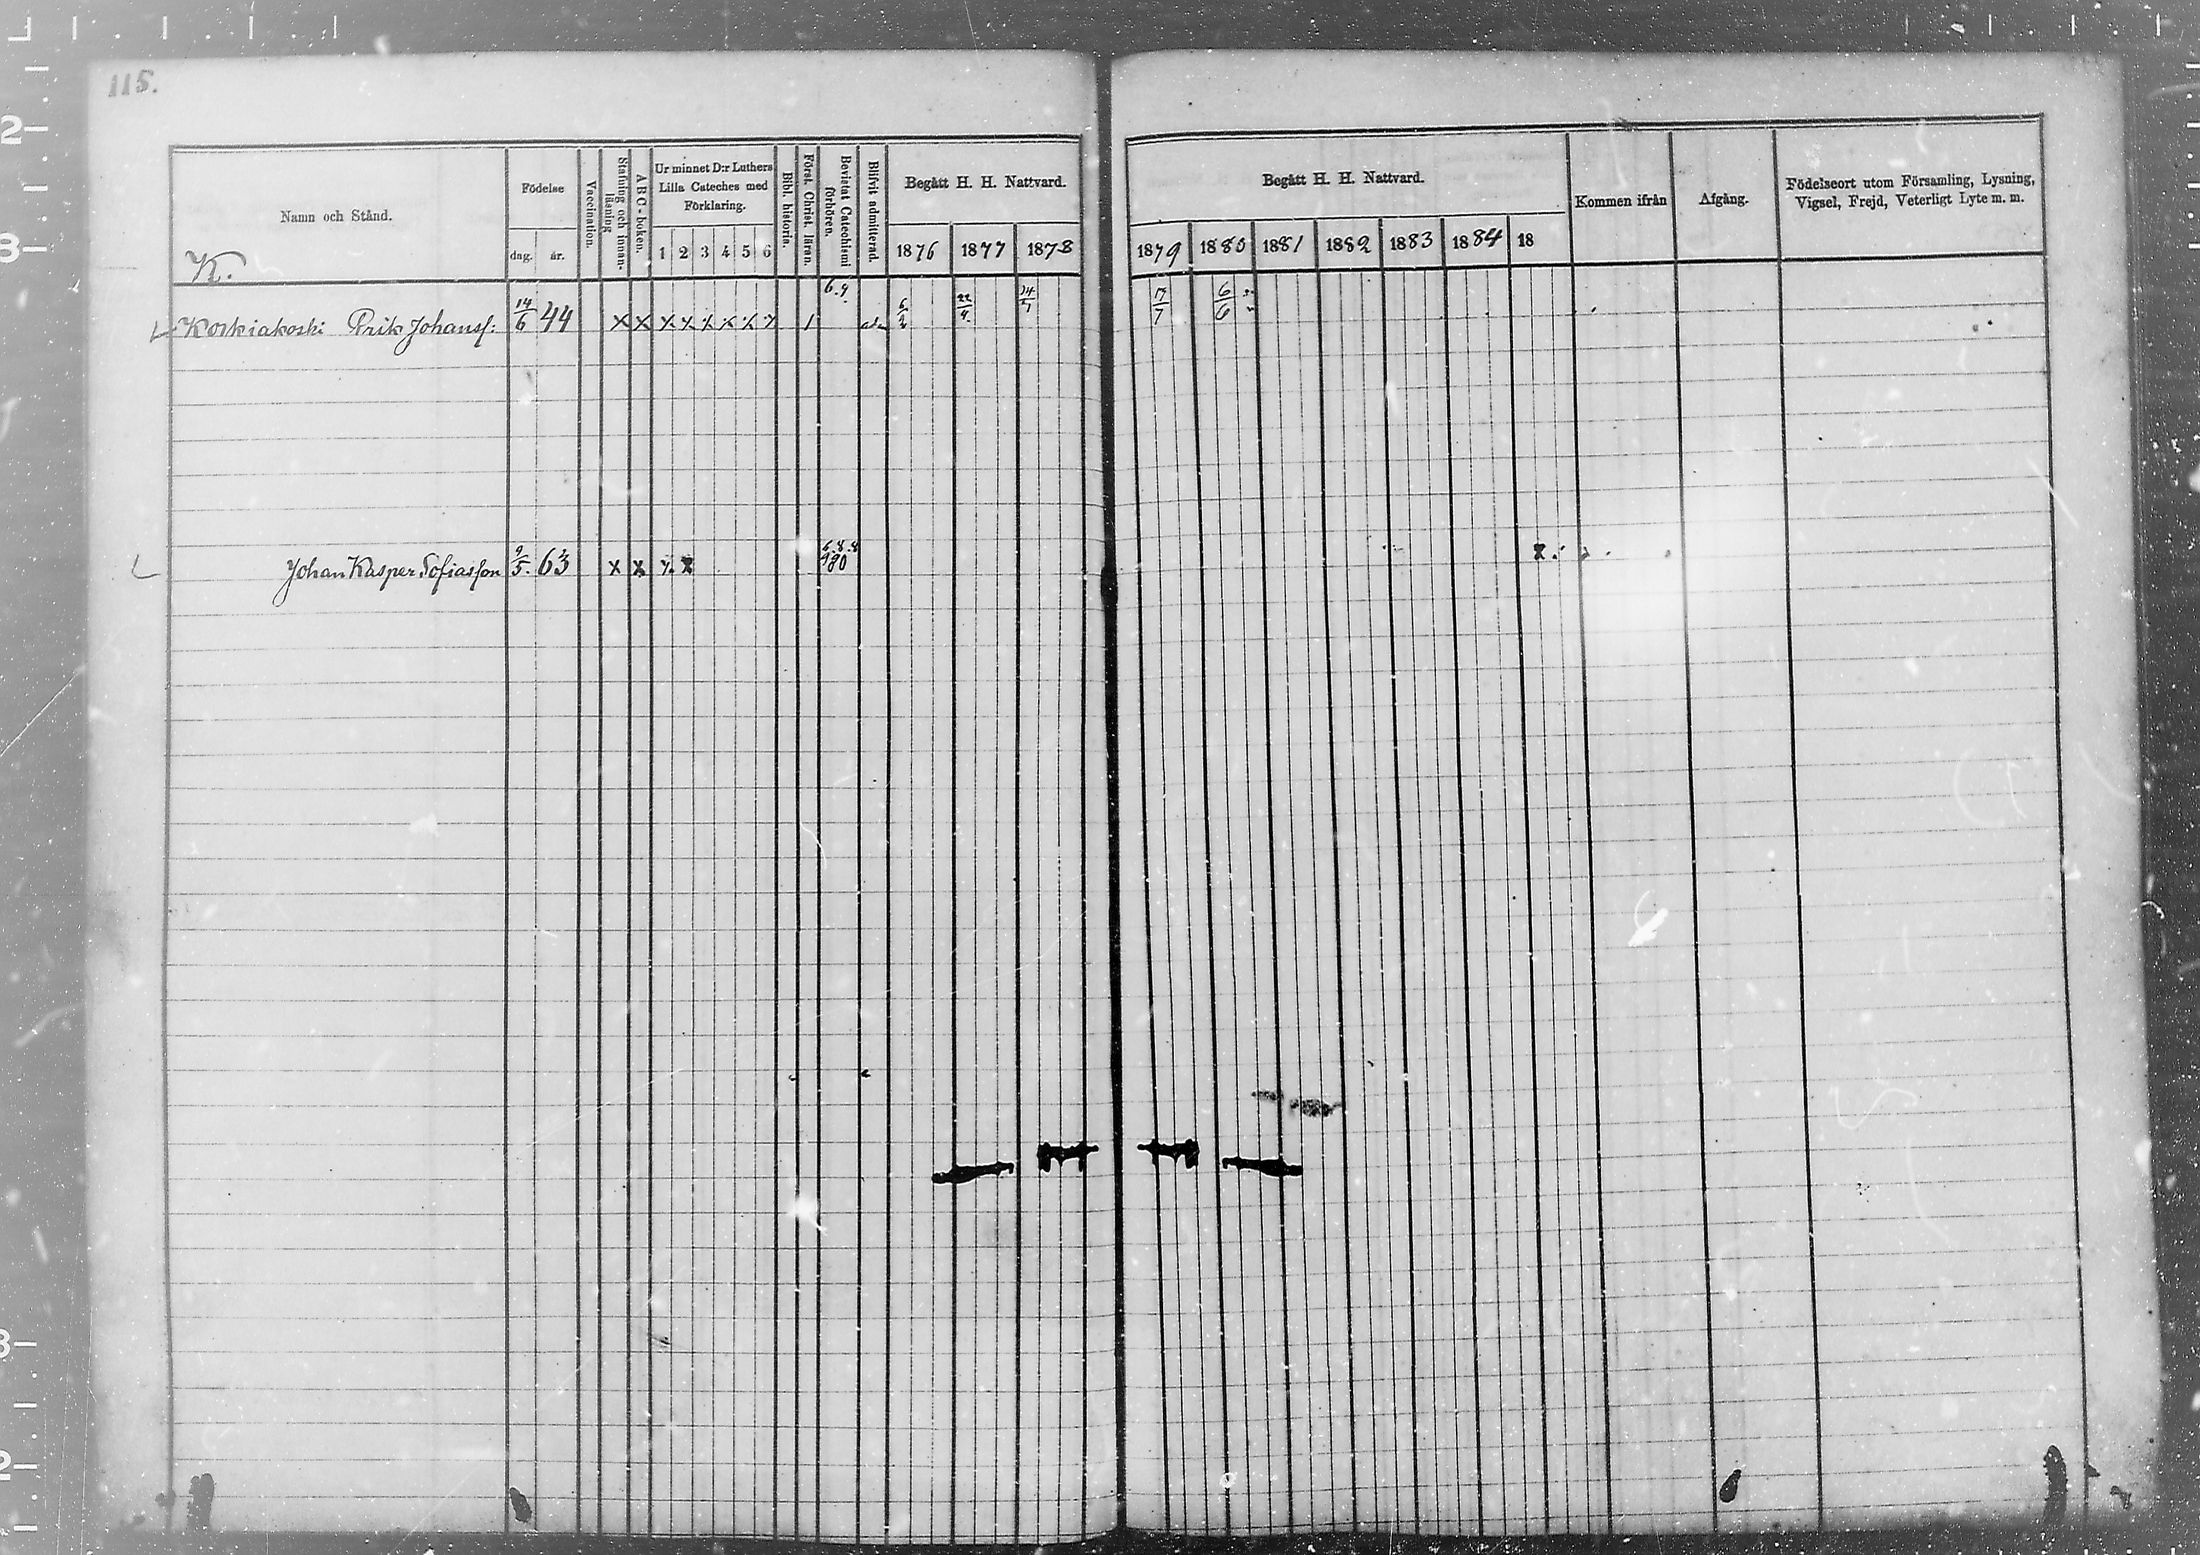 115.
Namn och Stånd.
Födelse
dag.
år.
Vaccination.
Stafning och innan-
läsning
A B C-boken.
Ur minnet D:r Luthers
Lilla Cateches med
Förklaring.
1 2 3 4 5 6
Bibl. historia.
Först. Christ. läran.
Bevistat Catechismi
förhören.
Blifvit admitterad.
Begått H. H. Nattvard.
1876 1877 1878
Begått H. H. Nattvard.
1879 1880 1881 1882 1883 1884 18
Kommen ifrån
Afgång.
Födelseort utom Församling, Lysning,
Vigsel, Frejd, Veterligt Lyte m. m.
K.
Koskiakoski Erik Johanss: 14/6 44 x x x x x x x x 1 6.9. 6/2 22/4 14/7 17/7 6/6
Johan Kasper Sofiasson 9/5. 63 x x x x 6.8.8 80 x